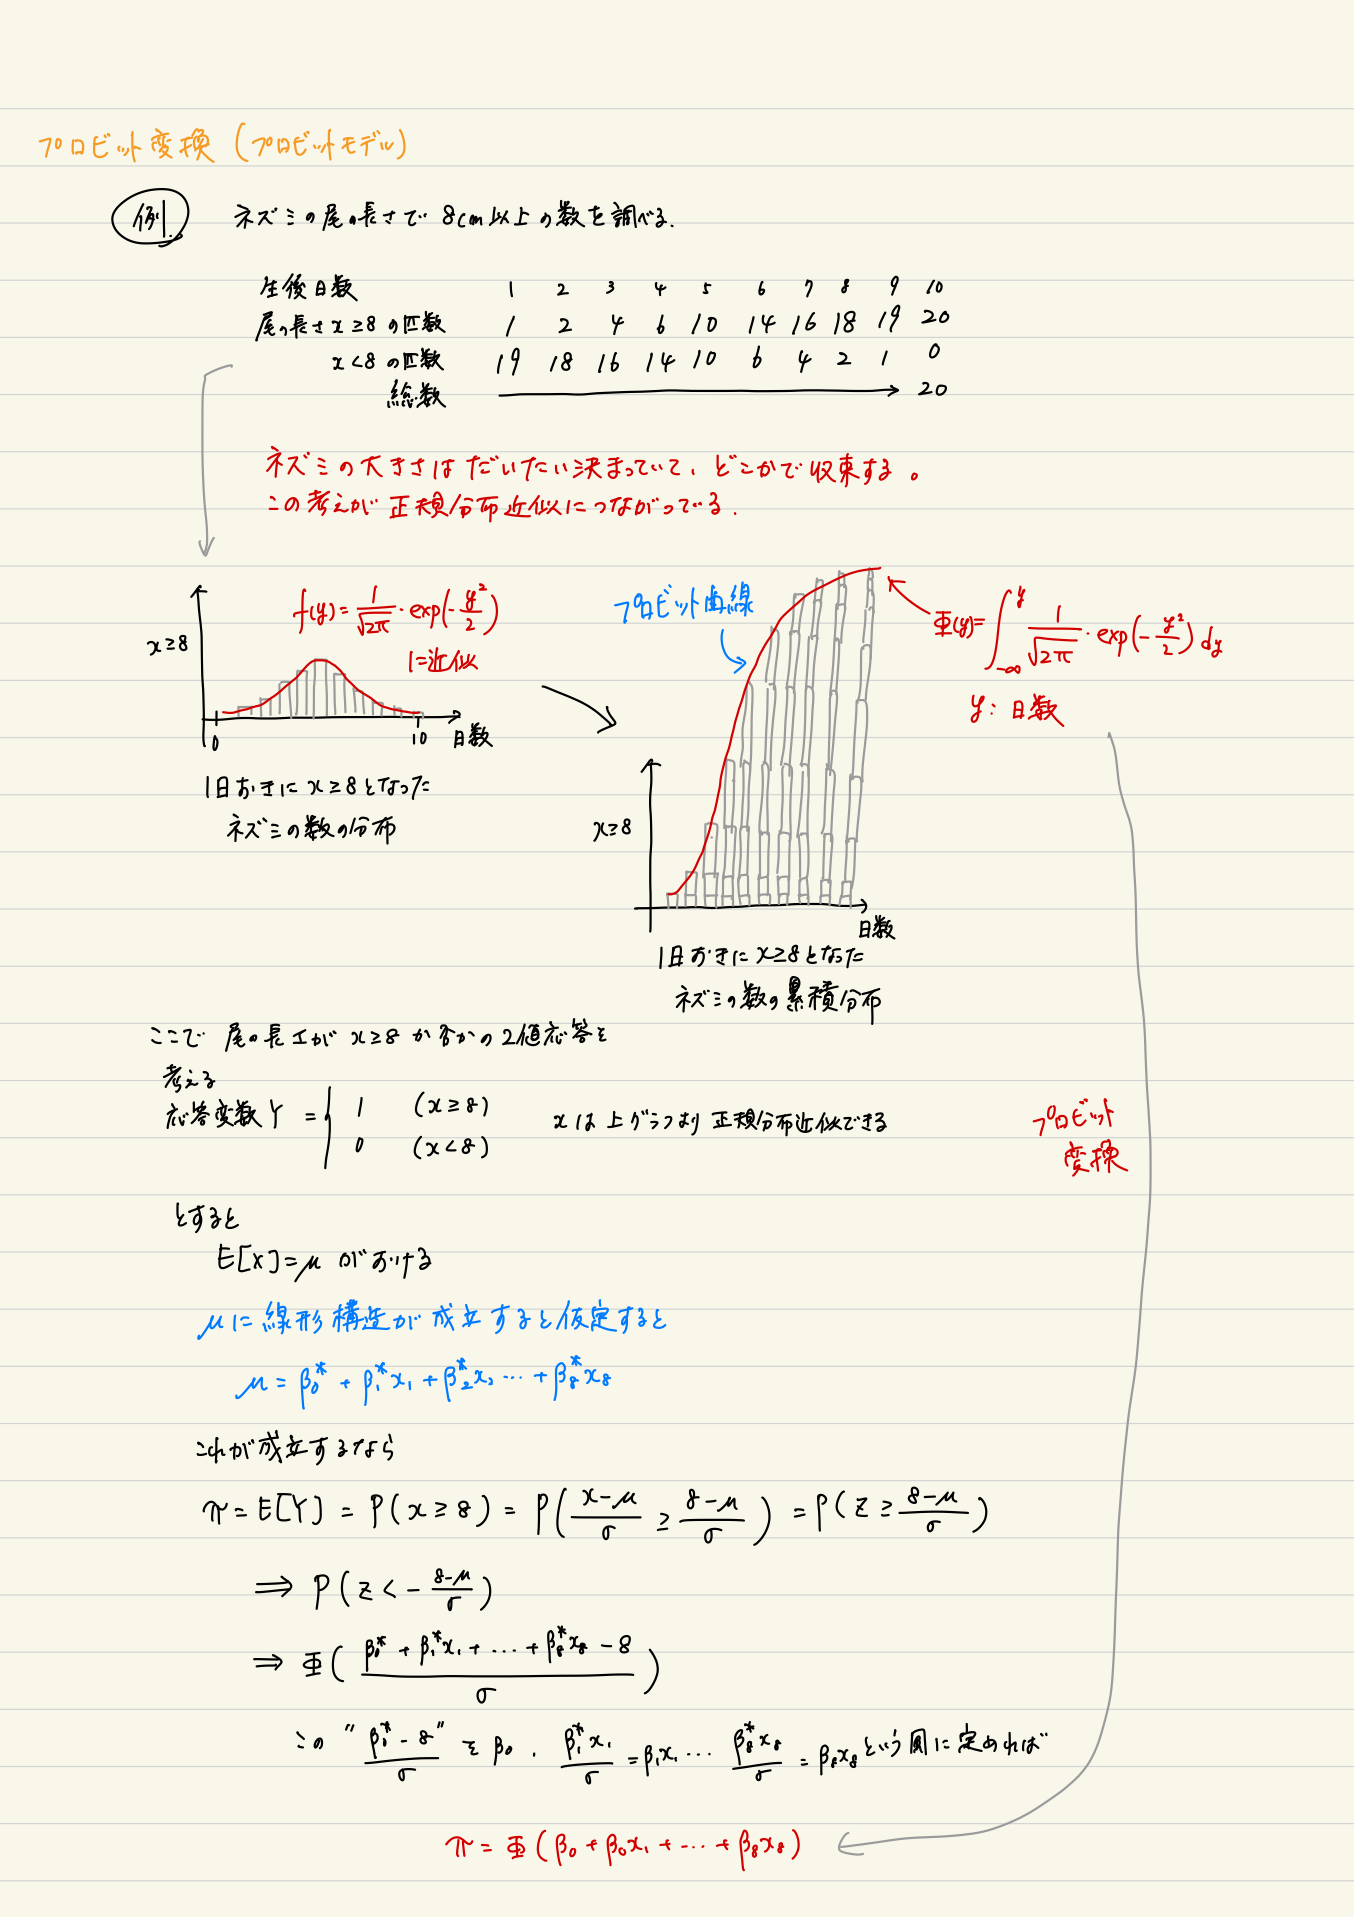 プロビット変換 (プロビットモデル)
例. ネズミの尾の長さで 8cm以上の数を調べる.
生後日数 1 2 3 4 5 6 7 8 9 10
尾の長さ x≥8 の匹数 1 2 4 6 10 14 16 18 19 20
x<8 の匹数 19 18 16 14 10 6 4 2 1 0
総数 → 20
ネズミの大きさは だいたい決まっていて、どこかで収束する。
この考えが 正規分布近似につながっている.
f(y) = 1/√2π · exp(-y²/2)
に近似
x≥8
0 10 日数
1日おきに x≥8となった
ネズミの数の分布
プロビット曲線
Φ(y)= ∫_{-∞}^{y} 1/√2π · exp(-y²/2) dy
y: 日数
x≥8
日数
1日おきに x≥8となった
ネズミの数の累積分布
ここで 尾の長さが x≥8 か否かの 2値応答を
考える
応答変数 Y = { 1 (x≥8)
0 (x<8)
xは 上グラフより 正規分布近似できる
プロビット
変換
とすると
E[X]=μ がおける
μに 線形構造が 成立すると仮定すると
μ = β₀* + β₁*x₁ + β₂*x₂ ··· + β₈*x₈
これが成立するなら
π = E[Y] = P(x≥8) = P((x-μ)/σ ≥ (8-μ)/σ) = P(z ≥ (8-μ)/σ)
⇒ P(z < - (8-μ)/σ)
⇒ Φ((β₀* + β₁*x₁ + ··· + β₈*x₈ - 8)/σ)
この "(β₀* - 8)/σ" を β₀ , β₁*x₁/σ = β₁x₁ ··· β₈*x₈/σ = β₈x₈ という風に定めれば
π = Φ(β₀ + β₀x₁ + ··· + β₈x₈)